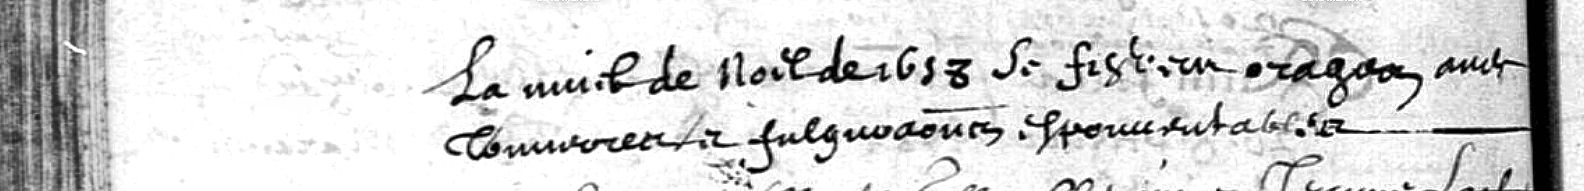 La nuict de Noël de 1653 se fist un orage avec
Tonnerre et fulguraōns espouventables